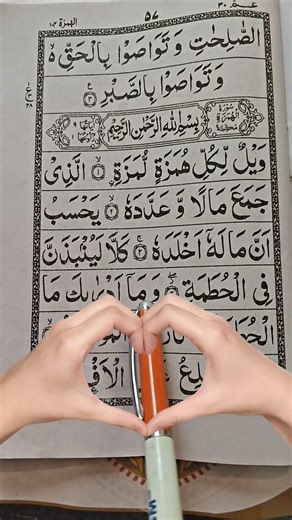 عمّ ٣٠ ٥٧ الهمزة ١٠٤
الصّٰلِحٰتِ وَتَوَاصَوْا بِالْحَقِّ ۙ
وَتَوَاصَوْا بِالصَّبْرِ ۝٣
سُوْرَةُ الْهُمَزَةِ مَكِّيَّةٌ بِسْمِ اللهِ الرَّحْمٰنِ الرَّحِيْمِ
وَيْلٌ لِّكُلِّ هُمَزَةٍ لُّمَزَةِ ۝١ ۙ الَّذِىْ
جَمَعَ مَالًا وَّ عَدَّدَهٗ ۝٢ ۙ يَحْسَبُ
اَنَّ مَالَهٗۤ اَخْلَدَهٗ ۝٣ ۚ كَلَّا لَيُنْۢبَذَنَّ
فِى الْحُطَمَةِ ۝٤ وَمَاۤ اَدْرٰىكَ مَا